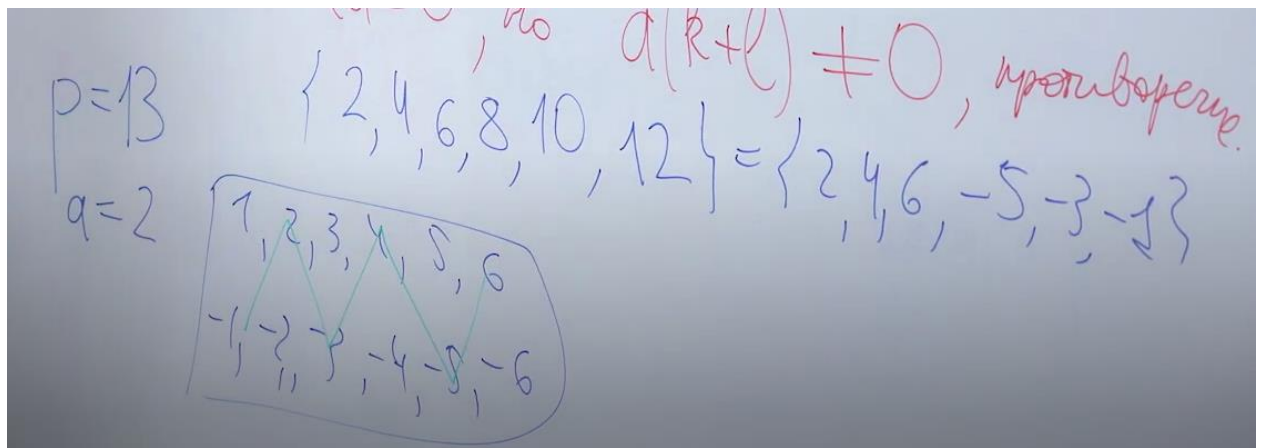 , но a(k+l) ≠ 0, противоречие.
p=13 {2,4,6,8,10,12}={2,4,6,-5,-3,-1}
a=2
1,2,3,4,5,6
-1,-2,-3,-4,-5,-6